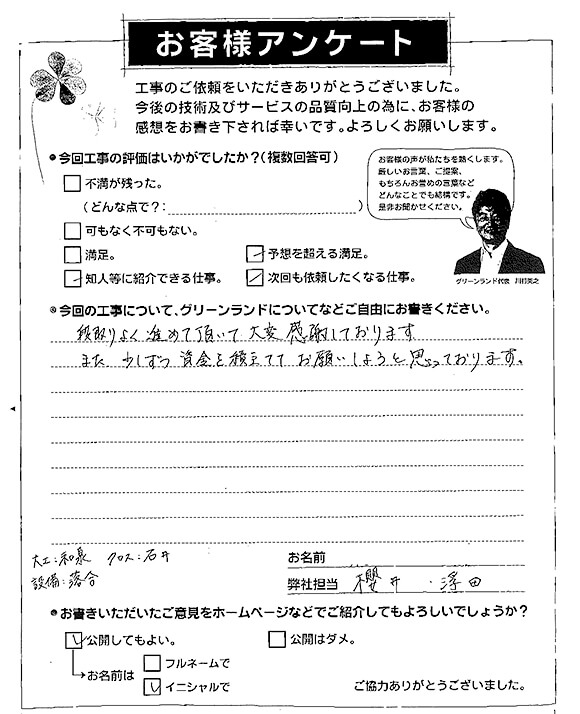 お客様アンケート
工事のご依頼をいただきありがとうございました。
今後の技術及びサービスの品質向上の為に、お客様の
感想をお書き下されば幸いです。よろしくお願いします。
●今回工事の評価はいかがでしたか?(複数回答可)
不満が残った。
(どんな点で?: )
可もなく不可もない。
満足。
予想を超える満足。
知人等に紹介できる仕事。
次回も依頼したくなる仕事。
お客様の声が私たちを熱くします。
厳しいお言葉、ご提案、
もちろんお誉めの言葉など
どんなことでも結構です。
是非お聞かせください。
グリーンランド代表
●今回の工事について、グリーンランドについてなどご自由にお書きください。
段取りよく進めて頂いて大変感謝しております
また少しずつ資金を積立ててお願いしようと思っております。
大工:和泉 クロス:石井
設備:落合
お名前
弊社担当 櫻井・浮田
●お書きいただいたご意見をホームページなどでご紹介してもよろしいでしょうか?
公開してもよい。
公開はダメ。
→お名前は
フルネームで
イニシャルで
ご協力ありがとうございました。